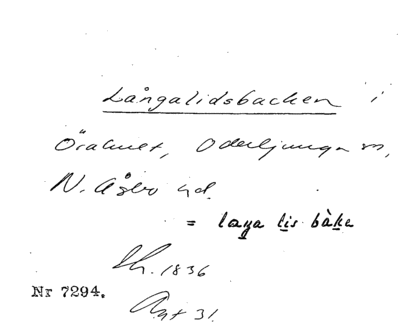 Långalidsbacken i
Örahult, Oderljunga sn,
N. Åsbo hd.
= laŋa lis bàke
Sk. 1836
Nr 7294.
Ant 31.